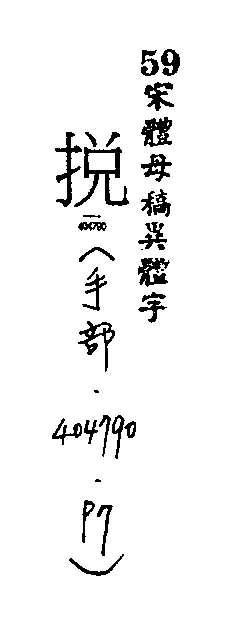 59宋體母稿異體字
挩
404790
（手部．404790．P7）